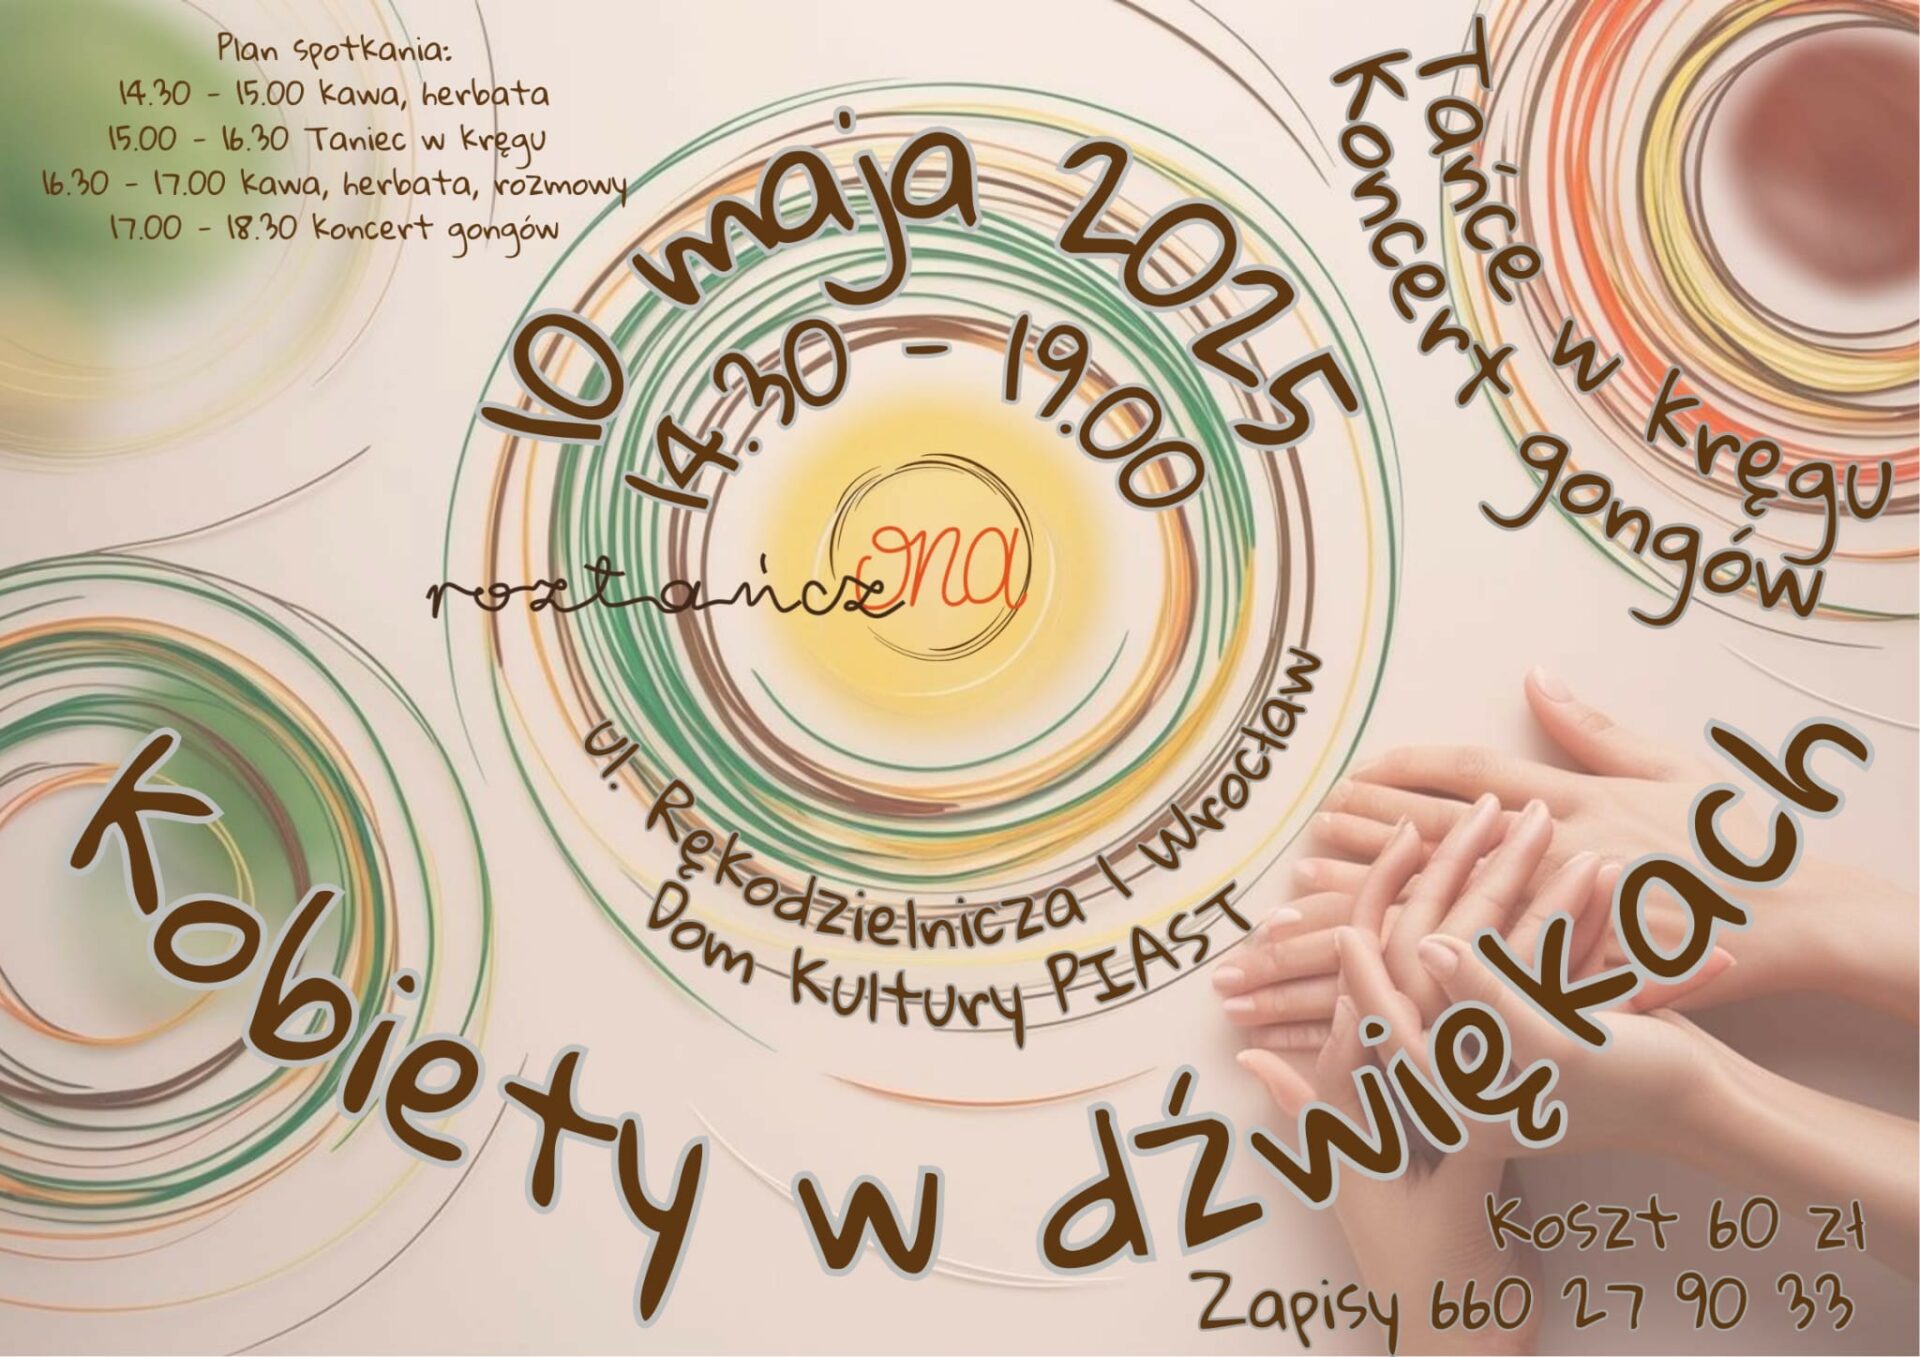 Plan spotkania:
14.30 - 15.00 Kawa, herbata
15.00 - 16.30 Taniec w kręgu
16.30 - 17.00 Kawa, herbata, rozmowy
17.00 - 18.30 Koncert gongów
Tańce w kręgu
Koncert gongów
10 maja 2025
14.30 - 19.00
roztańczona
ul. Rękodzielnicza 1 Wrocław
Dom Kultury PIAST
Kobiety w dźwiękach
Koszt 60 zł
Zapisy 660 27 90 33